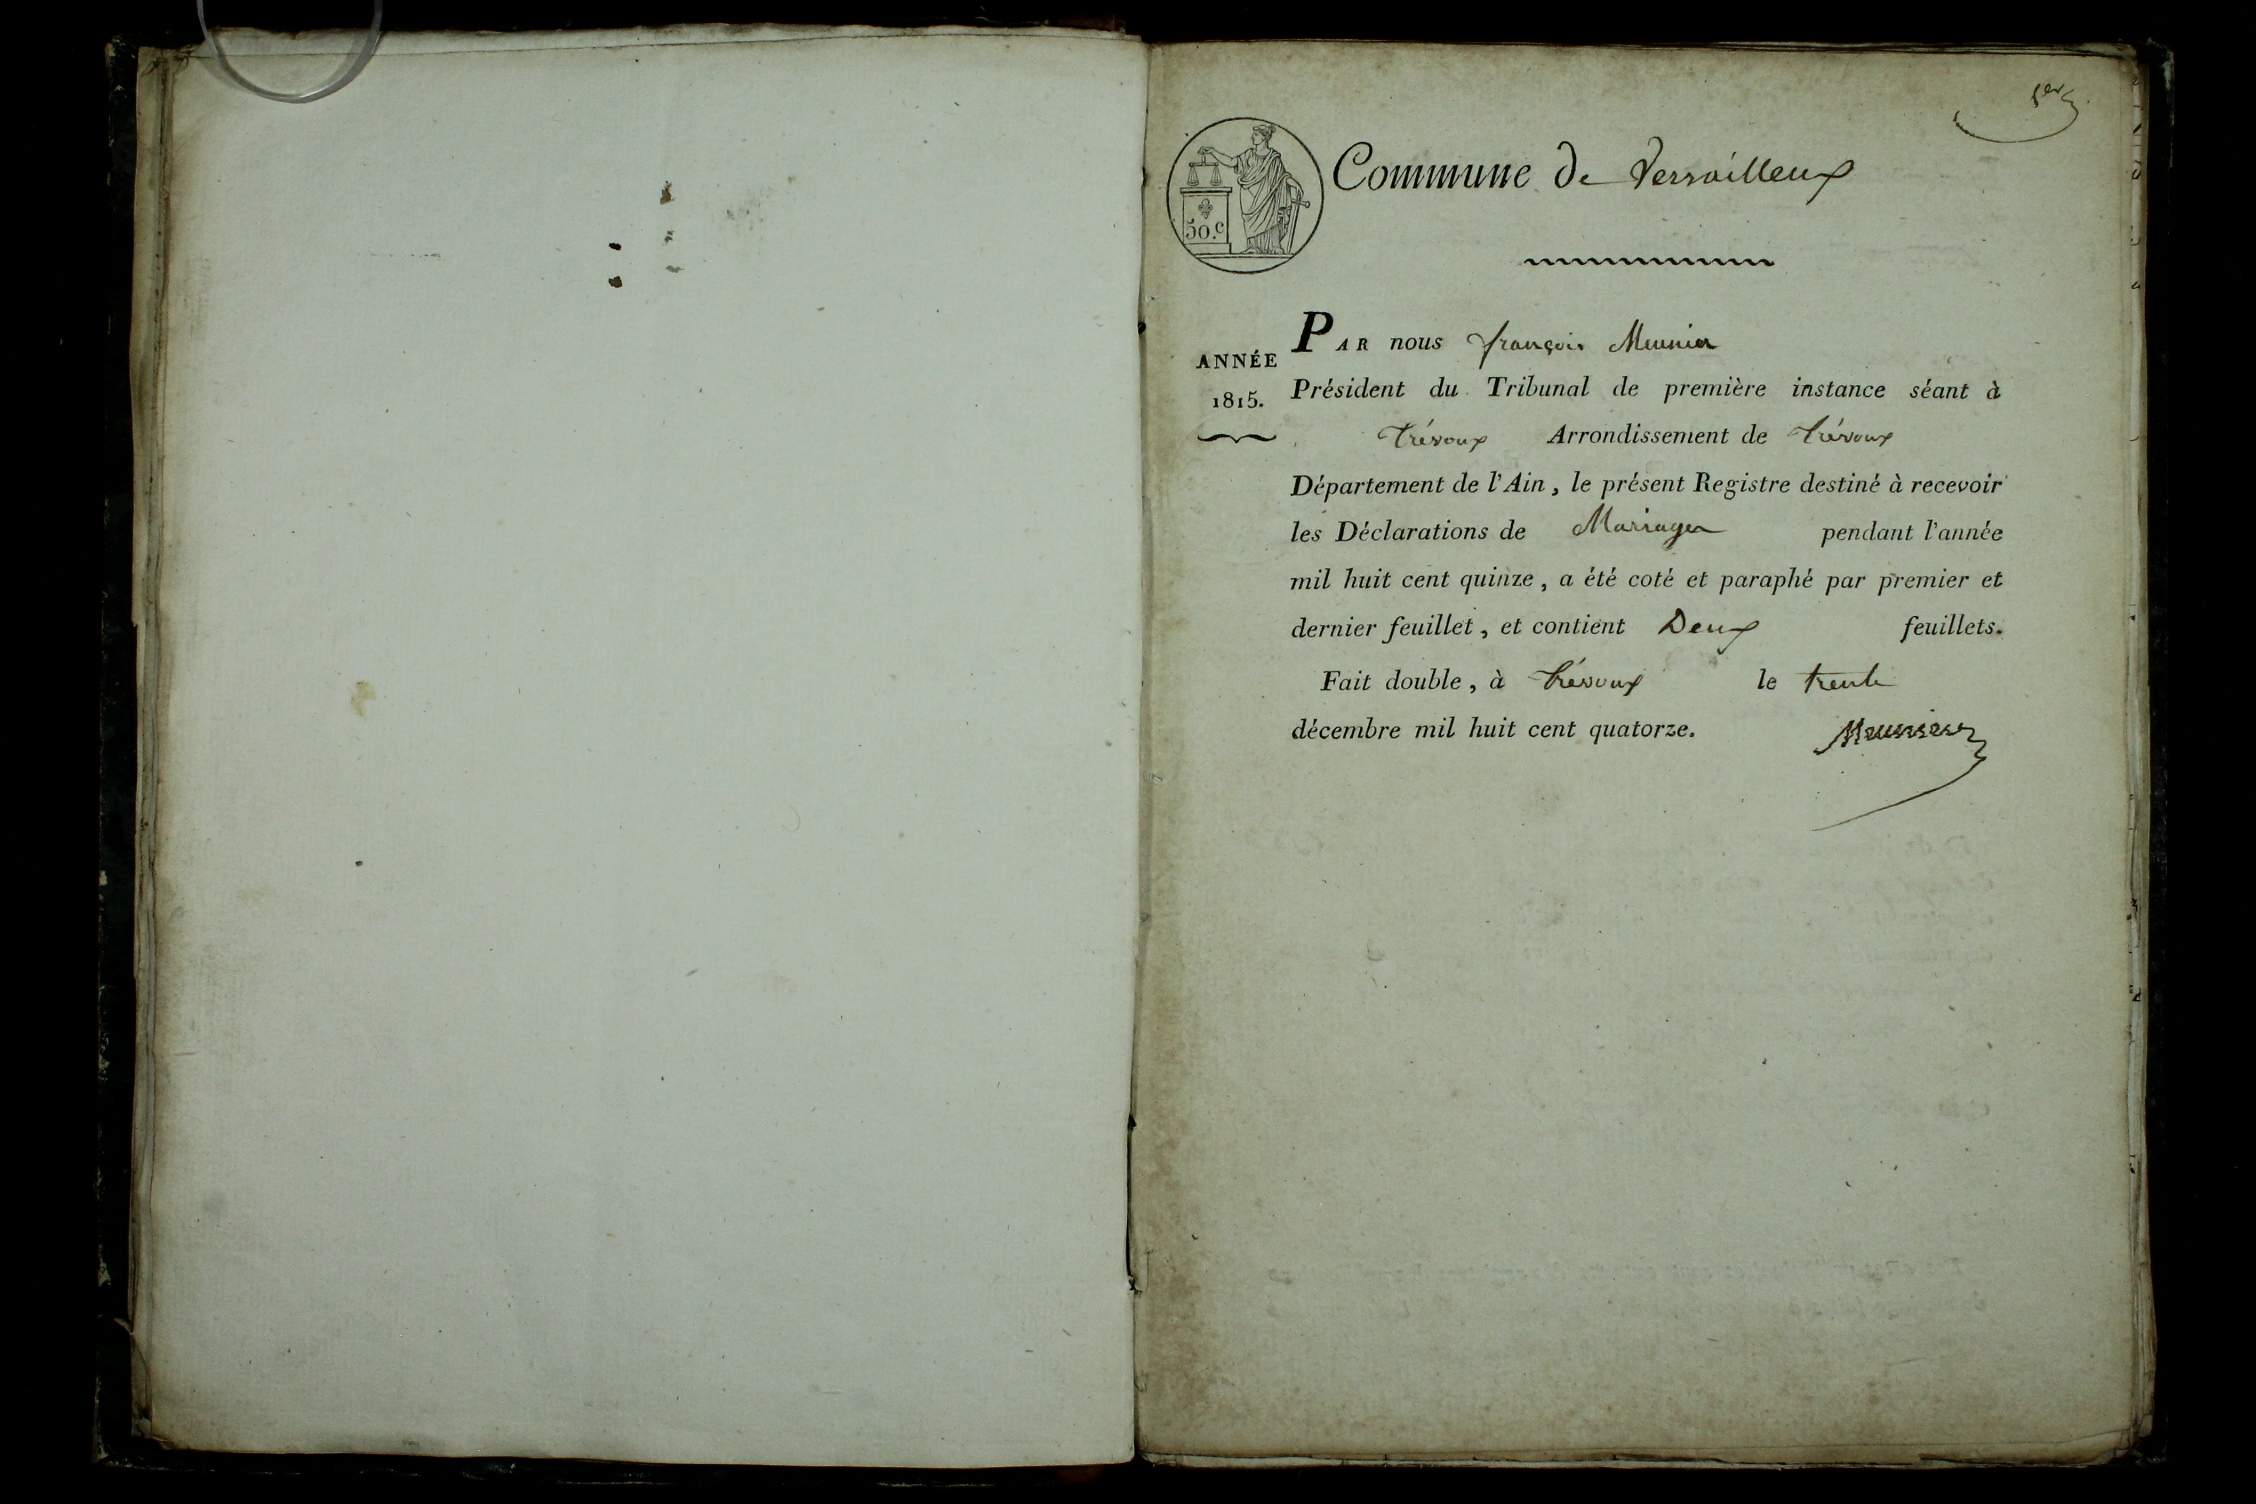 1er
Commune de Versailleux
50.c
ANNÉE
1815.
PAR nous françois Meunier
Président du Tribunal de première instance séant à
Trévoux Arrondissement de Trévoux
Département de l'Ain, le présent Registre destiné à recevoir
les Déclarations de Mariages pendant l'année
mil huit cent quinze, a été coté et paraphé par premier et
dernier feuillet, et contient Deux feuillets.
Fait double, à Trévoux le trente
décembre mil huit cent quatorze.
Meunier